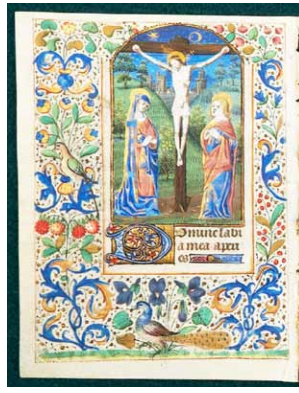 Domine labi
a mea aperi
es